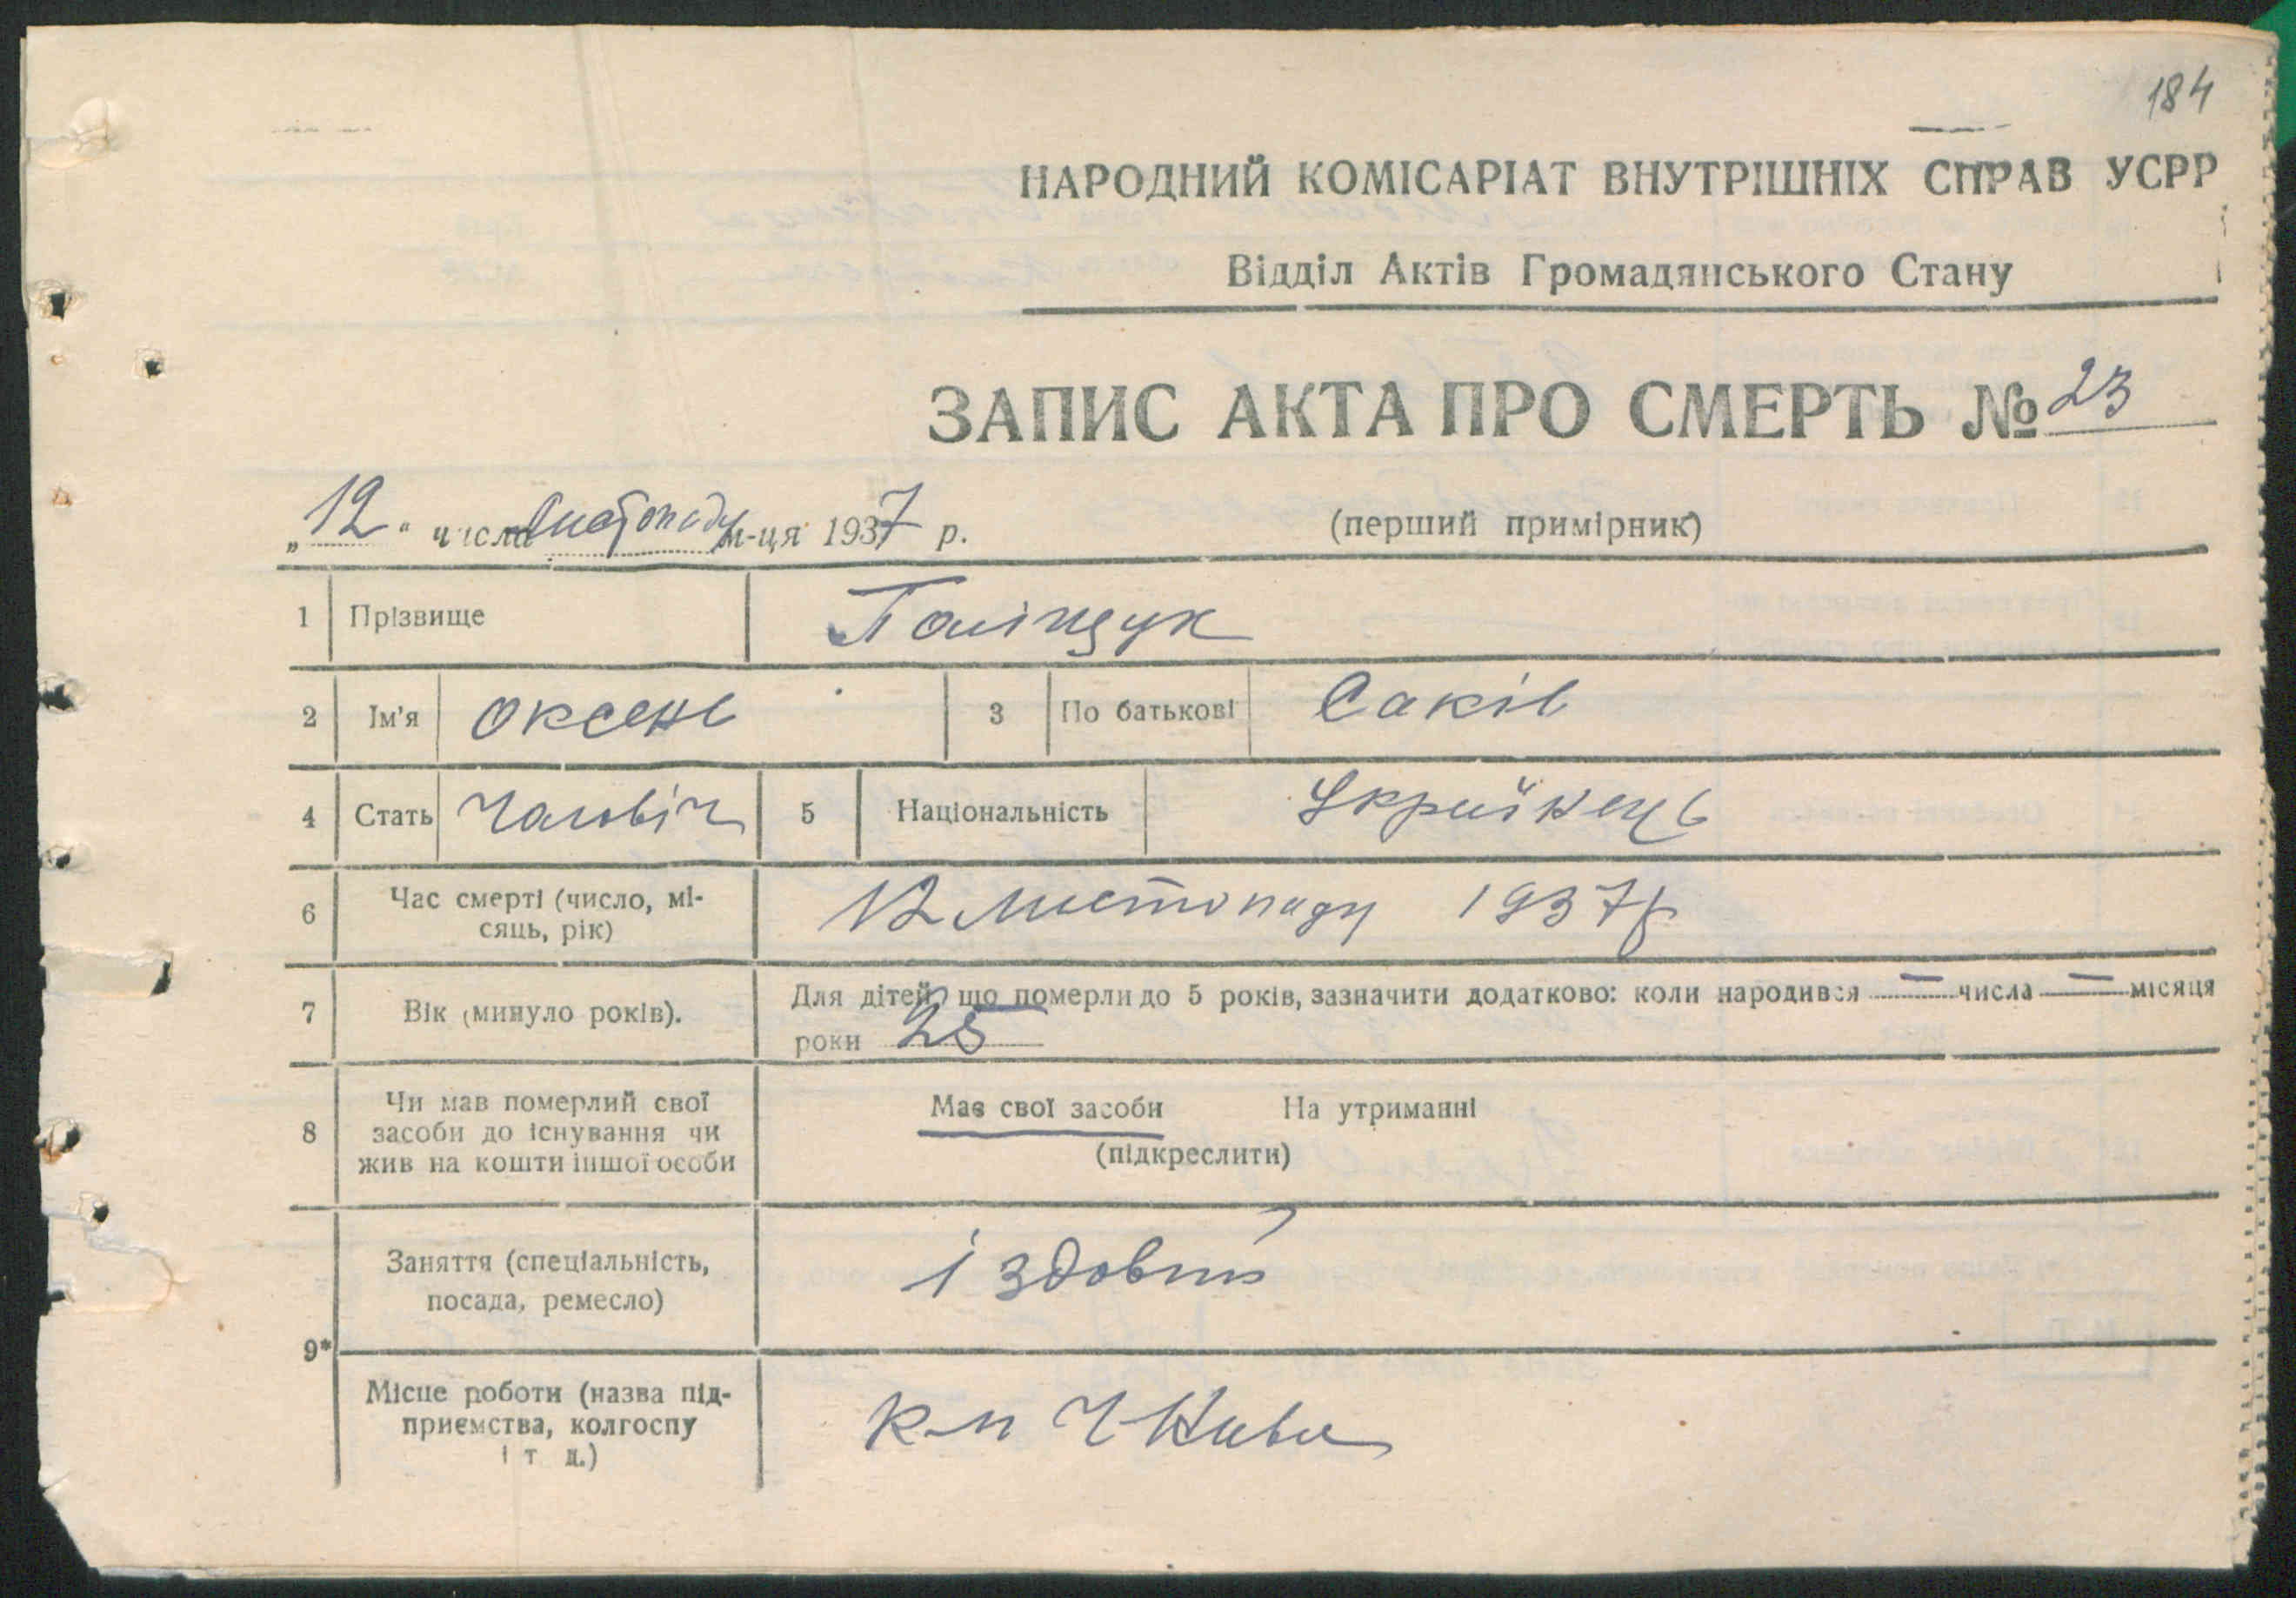 184
НАРОДНИЙ КОМІСАРІАТ ВНУТРІШНІХ СПРАВ УСРР
Відділ Актів Громадянського Стану
ЗАПИС АКТА ПРО СМЕРТЬ № 23
„12“ числа листопаду м-ця 1937 р. (перший примірник)
1 Прізвище Поліщук
2 Ім'я Оксень 3 По батькові Саків
4 Стать Чаловіч 5 Національність Украйнець
6 Час смерті (число, мі-
сяць, рік) 12 листопаду 1937 р
7 Вік (минуло років). Для дітей, що померли до 5 років, зазначити додатково: коли народився — числа — місяця
роки 25
8 Чи мав померлий свої
засоби до існування чи
жив на кошти іншої особи
Має свої засоби На утриманні
(підкреслити)
9* Заняття (спеціальність,
посада, ремесло) їздовий
Місце роботи (назва під-
приємства, колгоспу
і т д.) Ч Нива